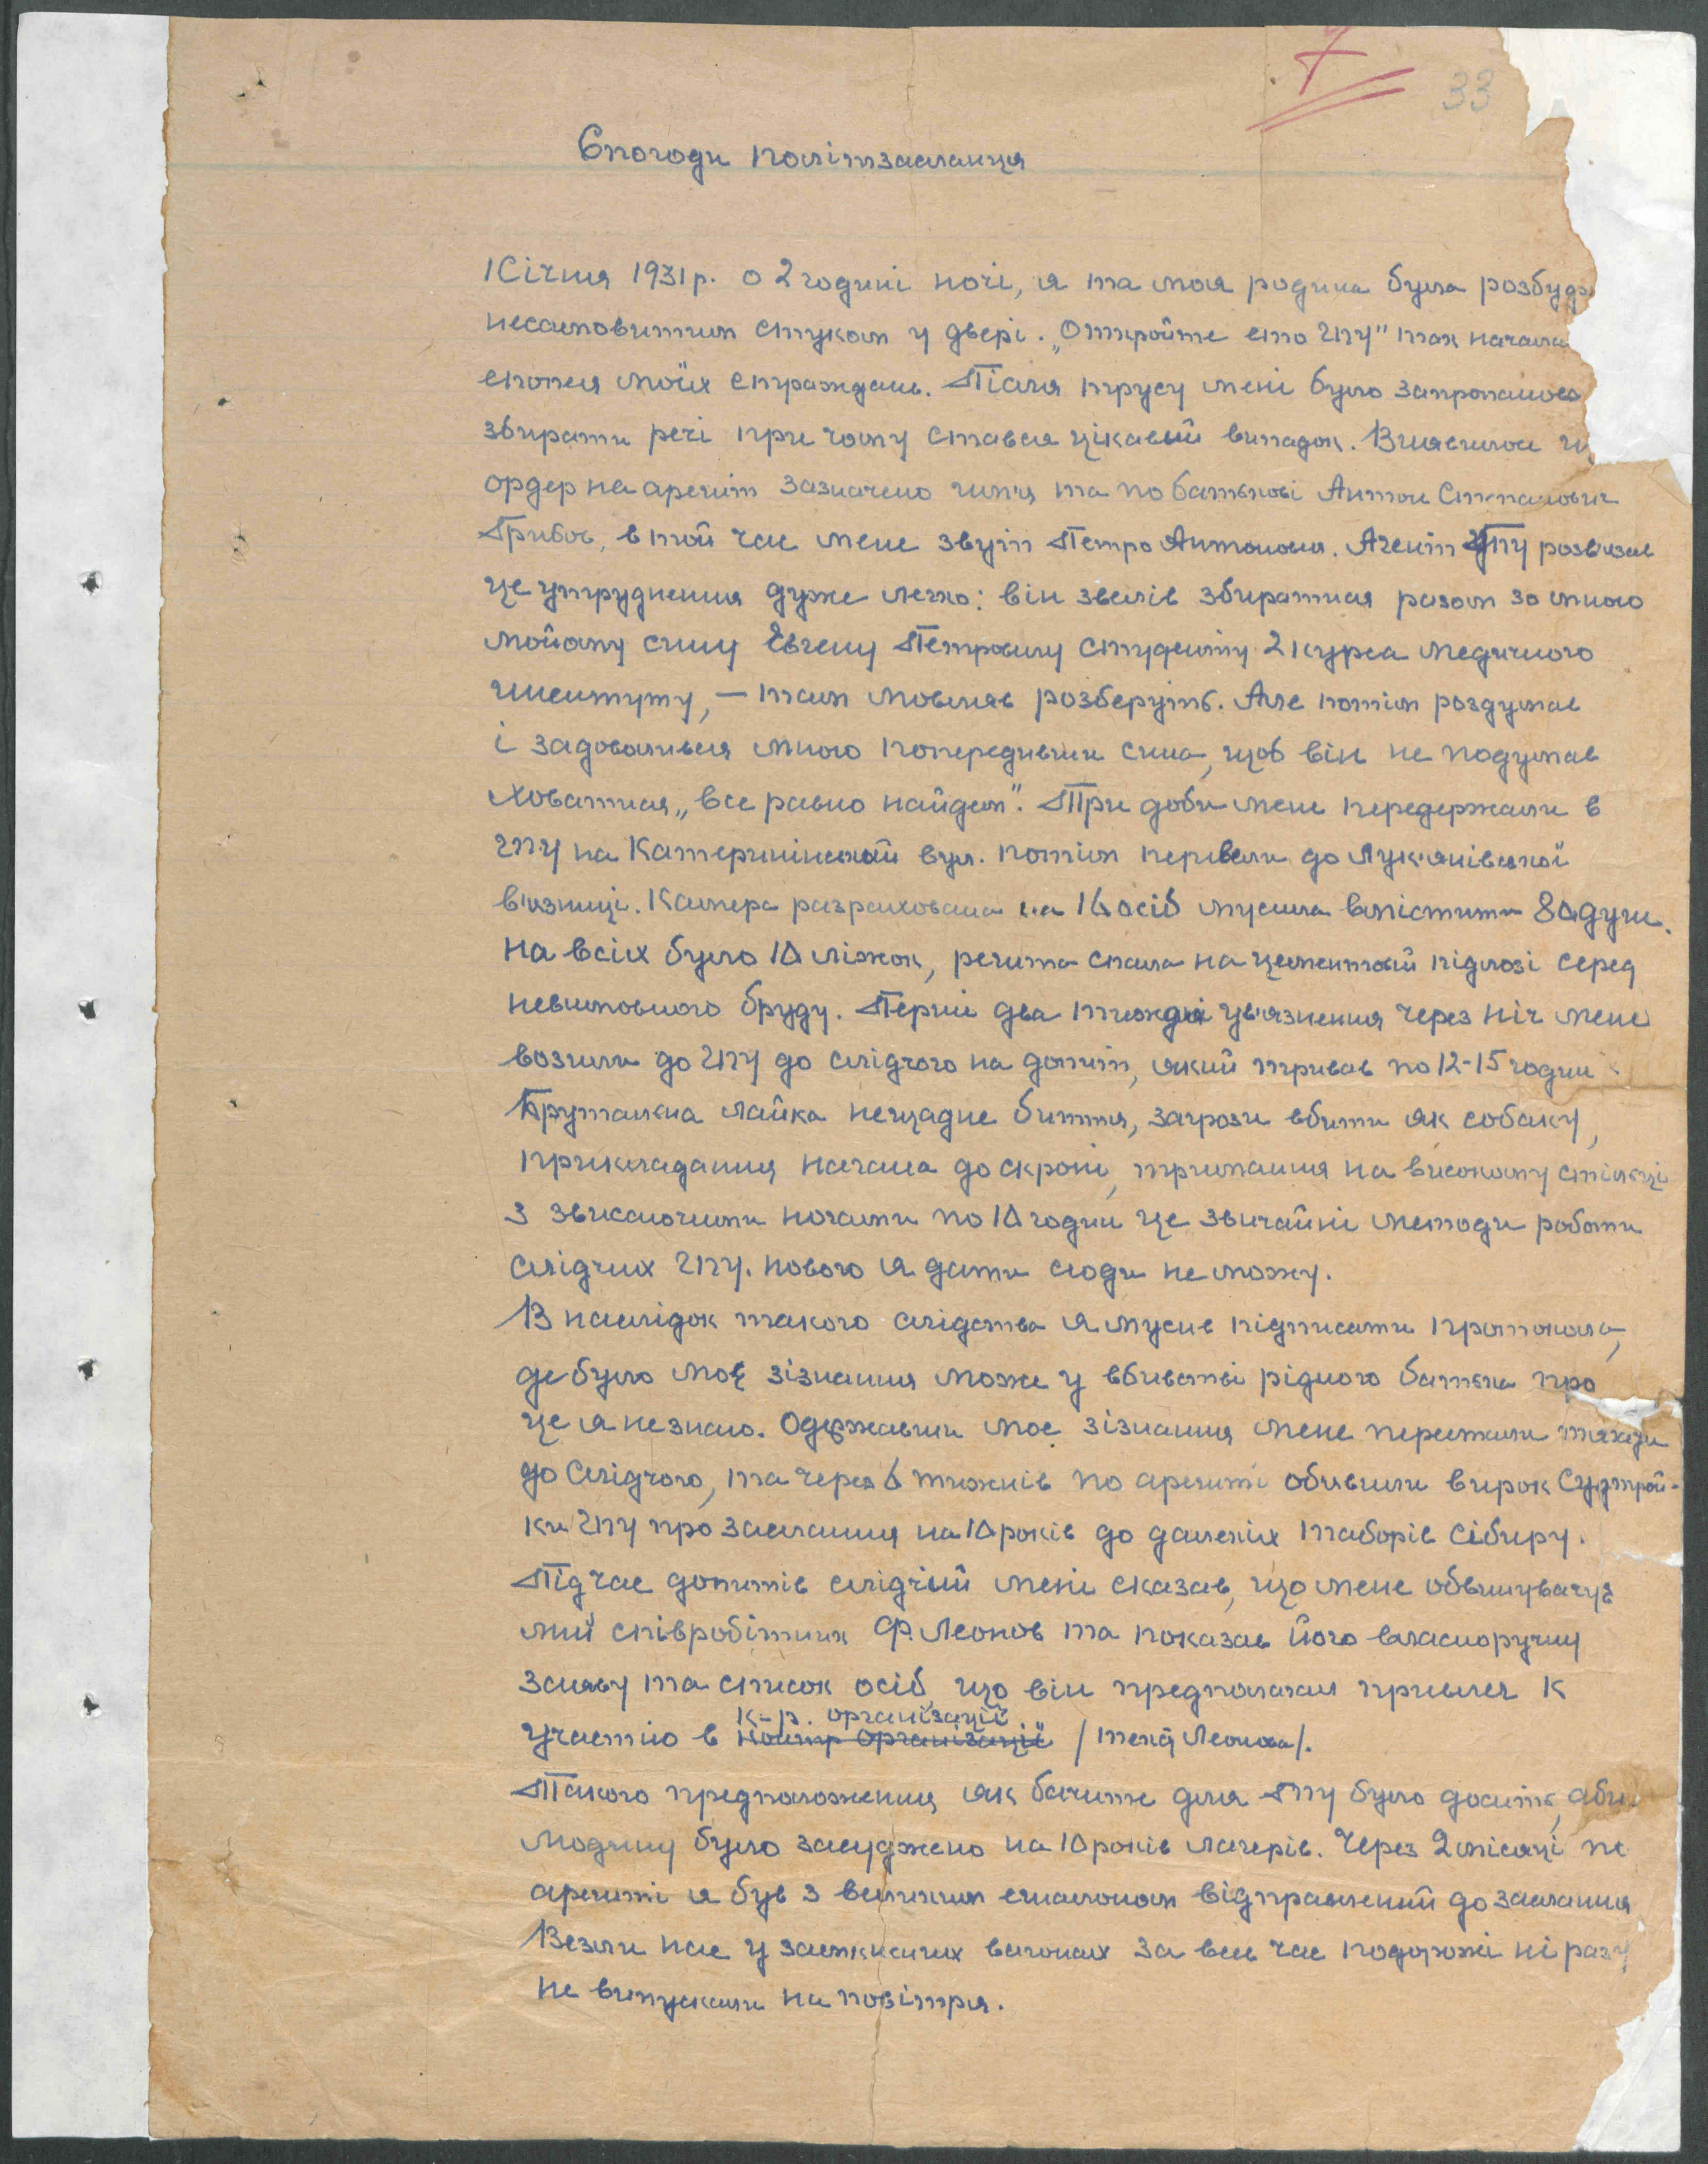 7
33
Спогоди політзасланця
1 Січня 1931 р. о 2 годині ночі, я та моя родина була розбудж
несамовитим стуком у двері. „Откройте ето ГПУ" так начала
епопея моїх страждань. Після трусу мені було запропонова
збирати речі при чому стався цікавий випадок. Вияснилос щ
ордер на арешт зазначено ім'я та по батькові Антон Степанович
Грибов, в той час мене звуть Петро Антонович. Агент ГПУ розвязав
це утруднення дуже легко: він звелів збиратися разом зо мною
мойому сину Евгену Петровичу студенту 2 курса медичного
інситуту, — там мовляв розберуть. Але потім роздумав
і задоволився мною попередивши сина, щоб він не подумав
ховатися „все равно найдем". Три доби мене передержали в
ГПУ на Катерининській вул. потім перевели до Лук'янівської
в'язниці. Камера разрахована на 16 осіб мусила вмістити 80 душ.
На всіх було 10 ліжок, решта спала на цементовій підлозі серед
невимовного бруду. Перші два тиждні ув'язнення через ніч мене
возили до ГПУ до слідчого на допит, який тривав по 12-15 годин
Брутальна лайка нещадне биття, загрози вбити як собаку,
прикладання нагана до скроні, тримання на високому стільці
з звисаючими ногами по 10 годин це звичайні методи роботи
слідчих ГПУ. нового я дати сюди не можу.
В наслідок такого слідства я мусив підписати протокола,
де було моє зізнання може у вбивстві рідного батька про
це я не знаю. Одержавши моє зізнання мене перестали тягати
до слідчого, та через 6 тижнів по арешті обявили вирок Судтрой-
ки ГПУ про заслання на 10 років до далеких таборів Сібиру.
Під час допитів слідчий мені сказав, що мене обвинувачує
мій співробітник Ф. Леонов та показав його власноручну
заяву та список осіб, що він предполагал привлеч к
участію в контр організації к-р. організації / текст Леонова/.
Такого предположення як бачите для ГПУ було досить, аби
людину було засуджено на 10 років лагерів. Через 2 місяці по
арешті я був з великим ешалоном відправлений до заслання
Везли нас у замкнених вагонах за весь час подорожі ні разу
не випускали на повітря.